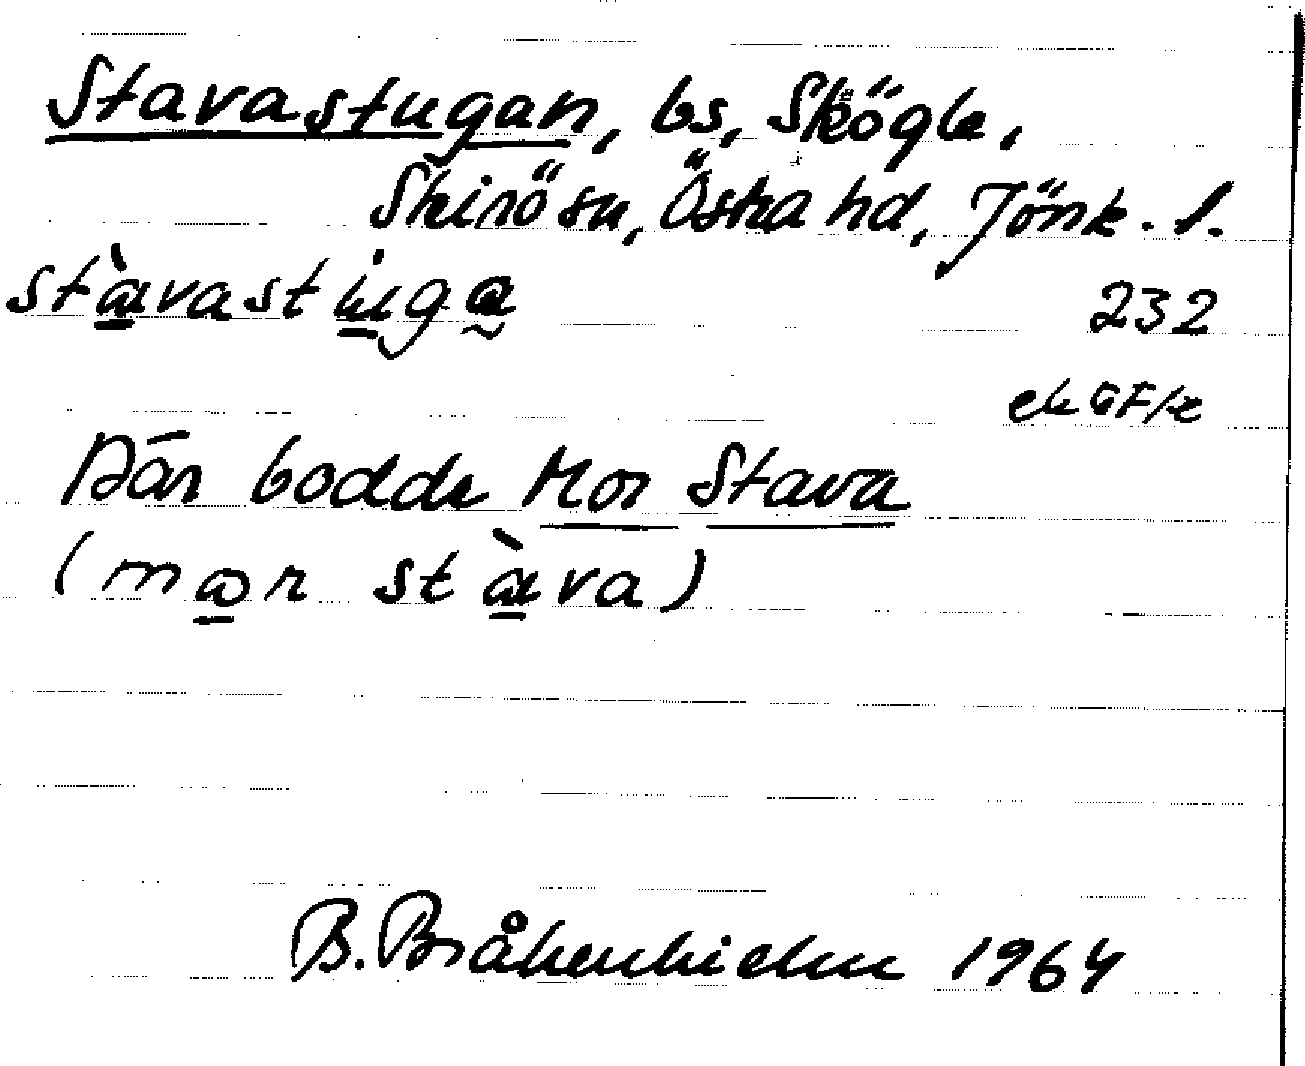 Stavastugan, bs, Skögle,
Skirö sn, Östra hd, Jönk. l.
stàvastuga
232
ek
Där bodde Mor Stava
(mor stàva)
B. Bråkenhielm 1964